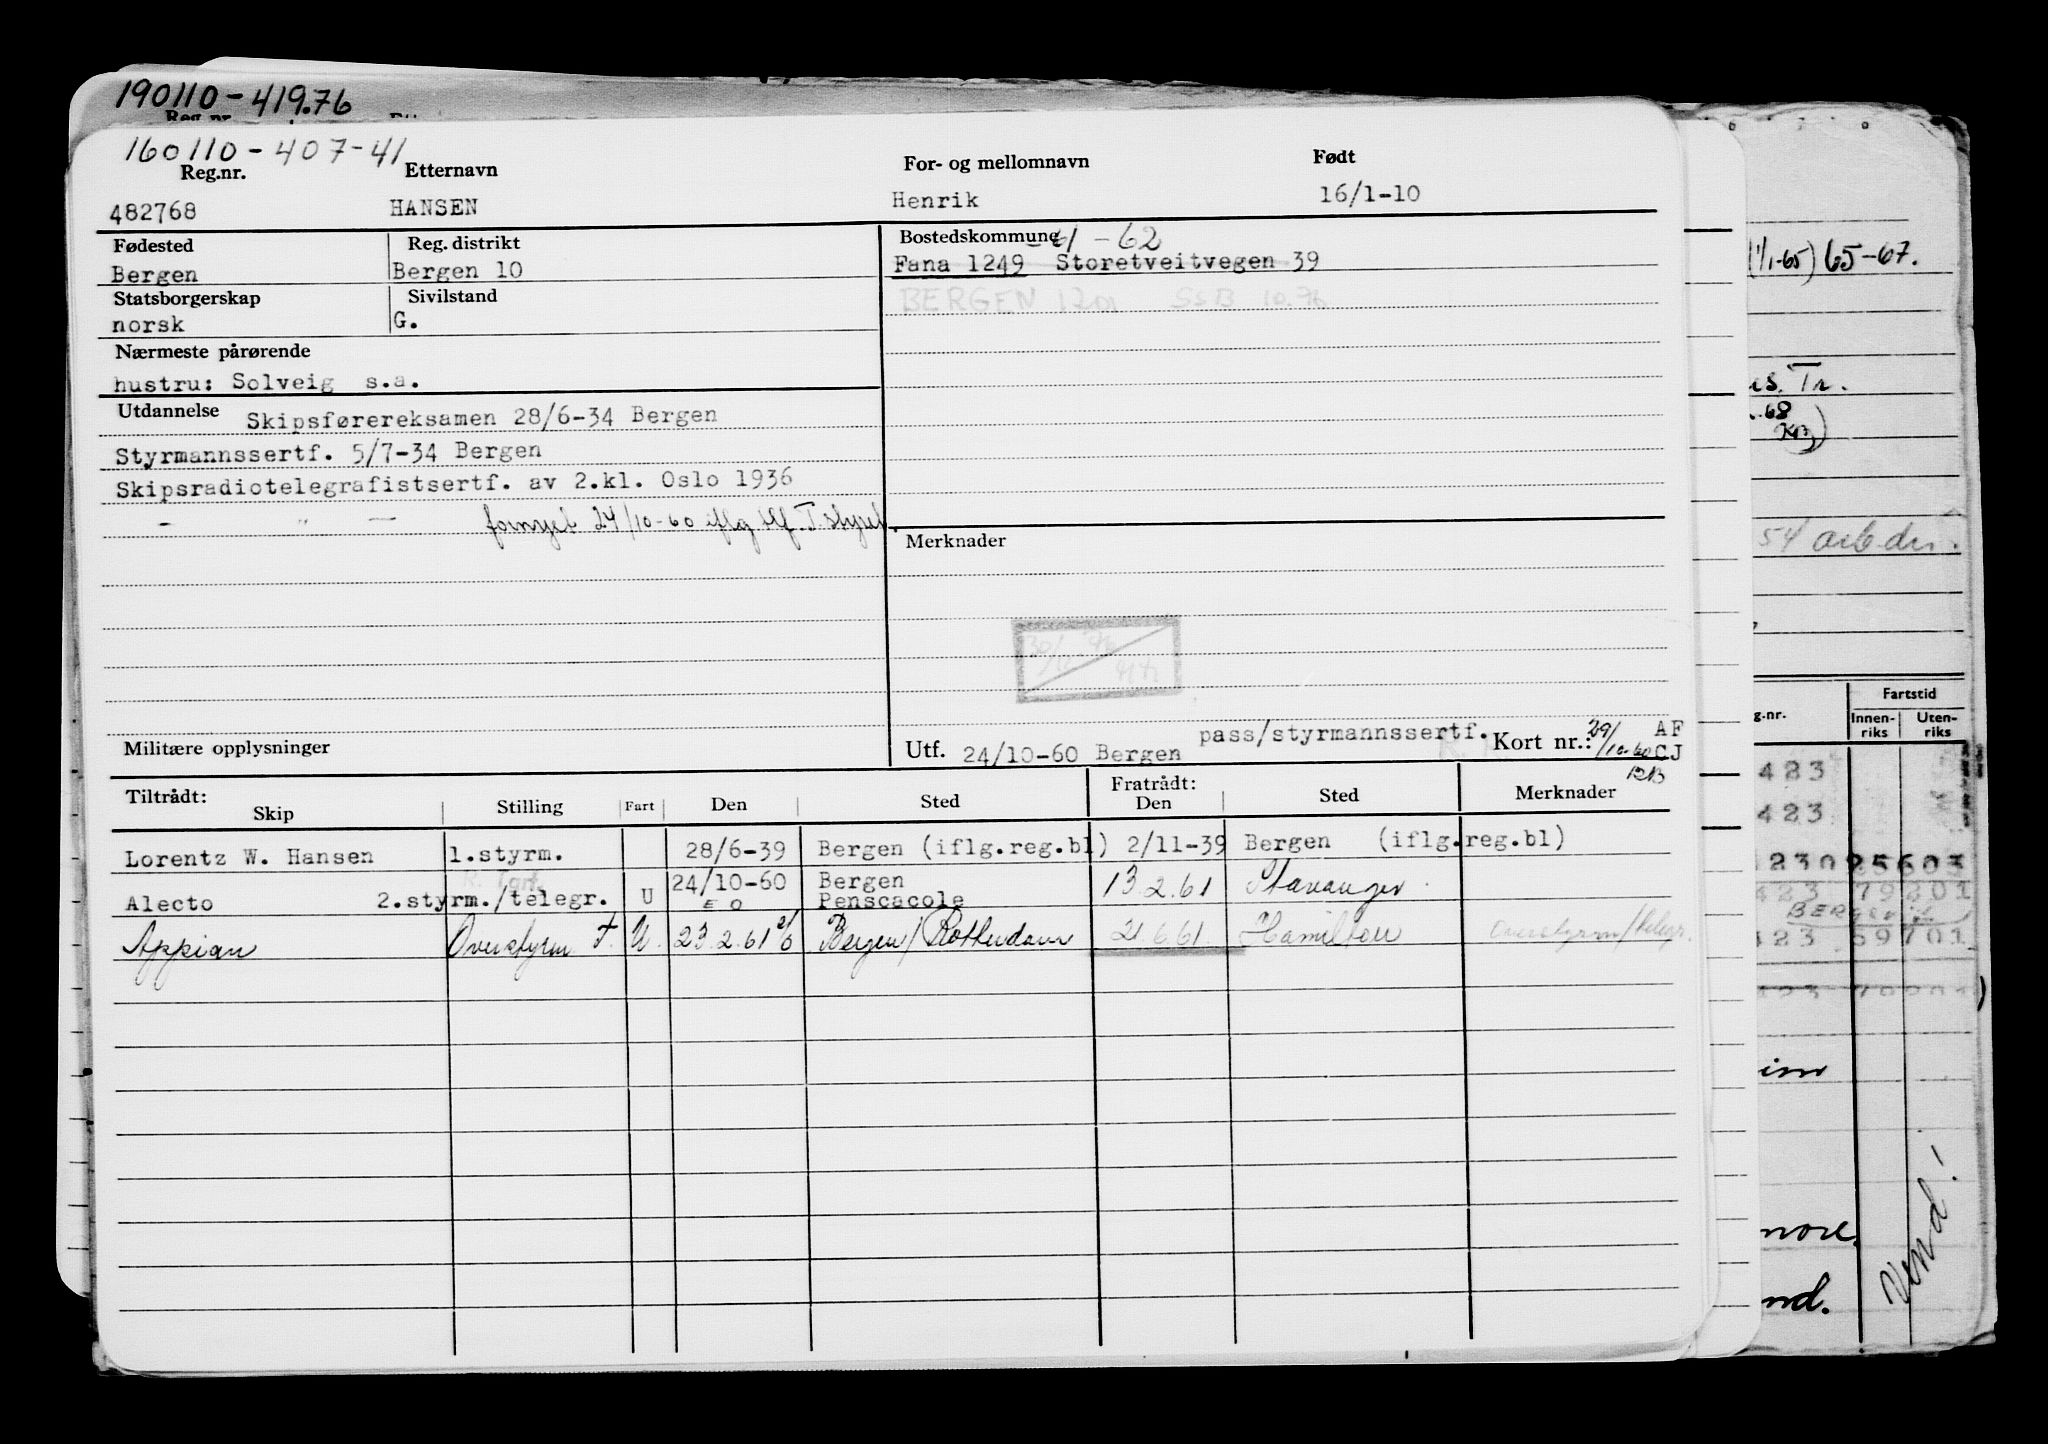 190110-419.76
160110-407-41
Reg.nr. Etternavn For- og mellomnavn Født
482768 HANSEN Henrik 16/1-10
Fødested Reg. distrikt Bostedskommune 61-62
Bergen Bergen 10 Fana 1249 Storetveitvegen 39
Statsborgerskap Sivilstand BERGEN 1201 SSB 10.76
norsk G.
Nærmeste pårørende
hustru: Solveig s.a.
Utdannelse Skipsførereksamen 28/6-34 Bergen
Styrmannssertf. 5/7-34 Bergen
Skipsradiotelegrafistsertf. av 2.kl. Oslo 1936
- " - fornyet 24/10-60 iflg tlf. T.styret.
Merknader
Militære opplysninger Utf. 24/10-60 Bergen pass/styrmannssertf. Kort nr.: 29/10-60 AF
CJ
Tiltrådt: Fratrådt:
Skip Stilling Fart Den Sted Den Sted Merknader
Lorentz W. Hansen 1.styrm. 28/6-39 Bergen (iflg.reg.bl) 2/11-39 Bergen (iflg.reg.bl)
Alecto 2.styrm./telegr. U 24/10-60 Bergen Penscacole 13.2.61 Stavanger
Appian Overstyrm T. U. 23.2.61 Bergen/Rotterdam 21.6.61 Hamilton Overstyrm/telegr.
(1/1-65) 65-67.
Tr.
54 arb.dir.
Fartstid
g.nr. Innen-riks Uten-riks
423
423
1230 25603
423 79201
BERGVIK
423 69701
423 70201
im
more.
nd.
Vend!